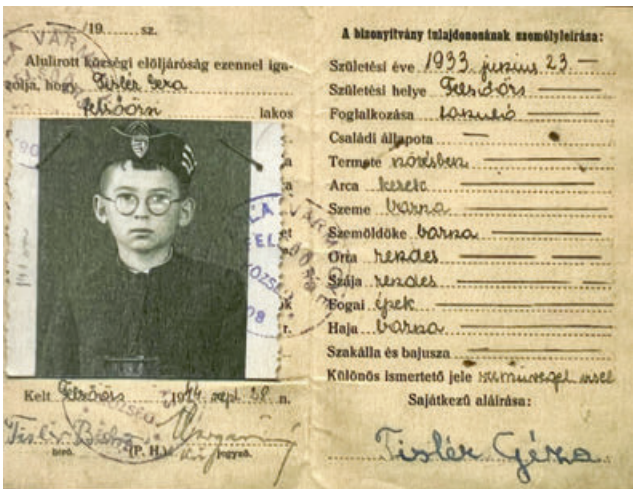 /19 sz.
Alulirott községi elöljáróság ezennel iga-
zolja, hogy Tislér Géza
felsőörsi lakos
Kelt Felsőörs 1944 szept 28. n.
Tislér
biró. (P. H.) jegyző.
A bizonyítvány tulajdonosának személyleírása:
Születési éve 1933 junius 23. —
Születési helye Felsőörs —
Foglalkozása tanuló —
Családi állapota —
Termete növésben —
Arca kerek —
Szeme barna —
Szemöldöke barna —
Orra rendes — —
Szája rendes — —
Fogai épek —
Haja barna —
Szakálla és bajusza —
Különös ismertető jele szemüveget visel
Sajátkezű aláirása:
Tislér Géza